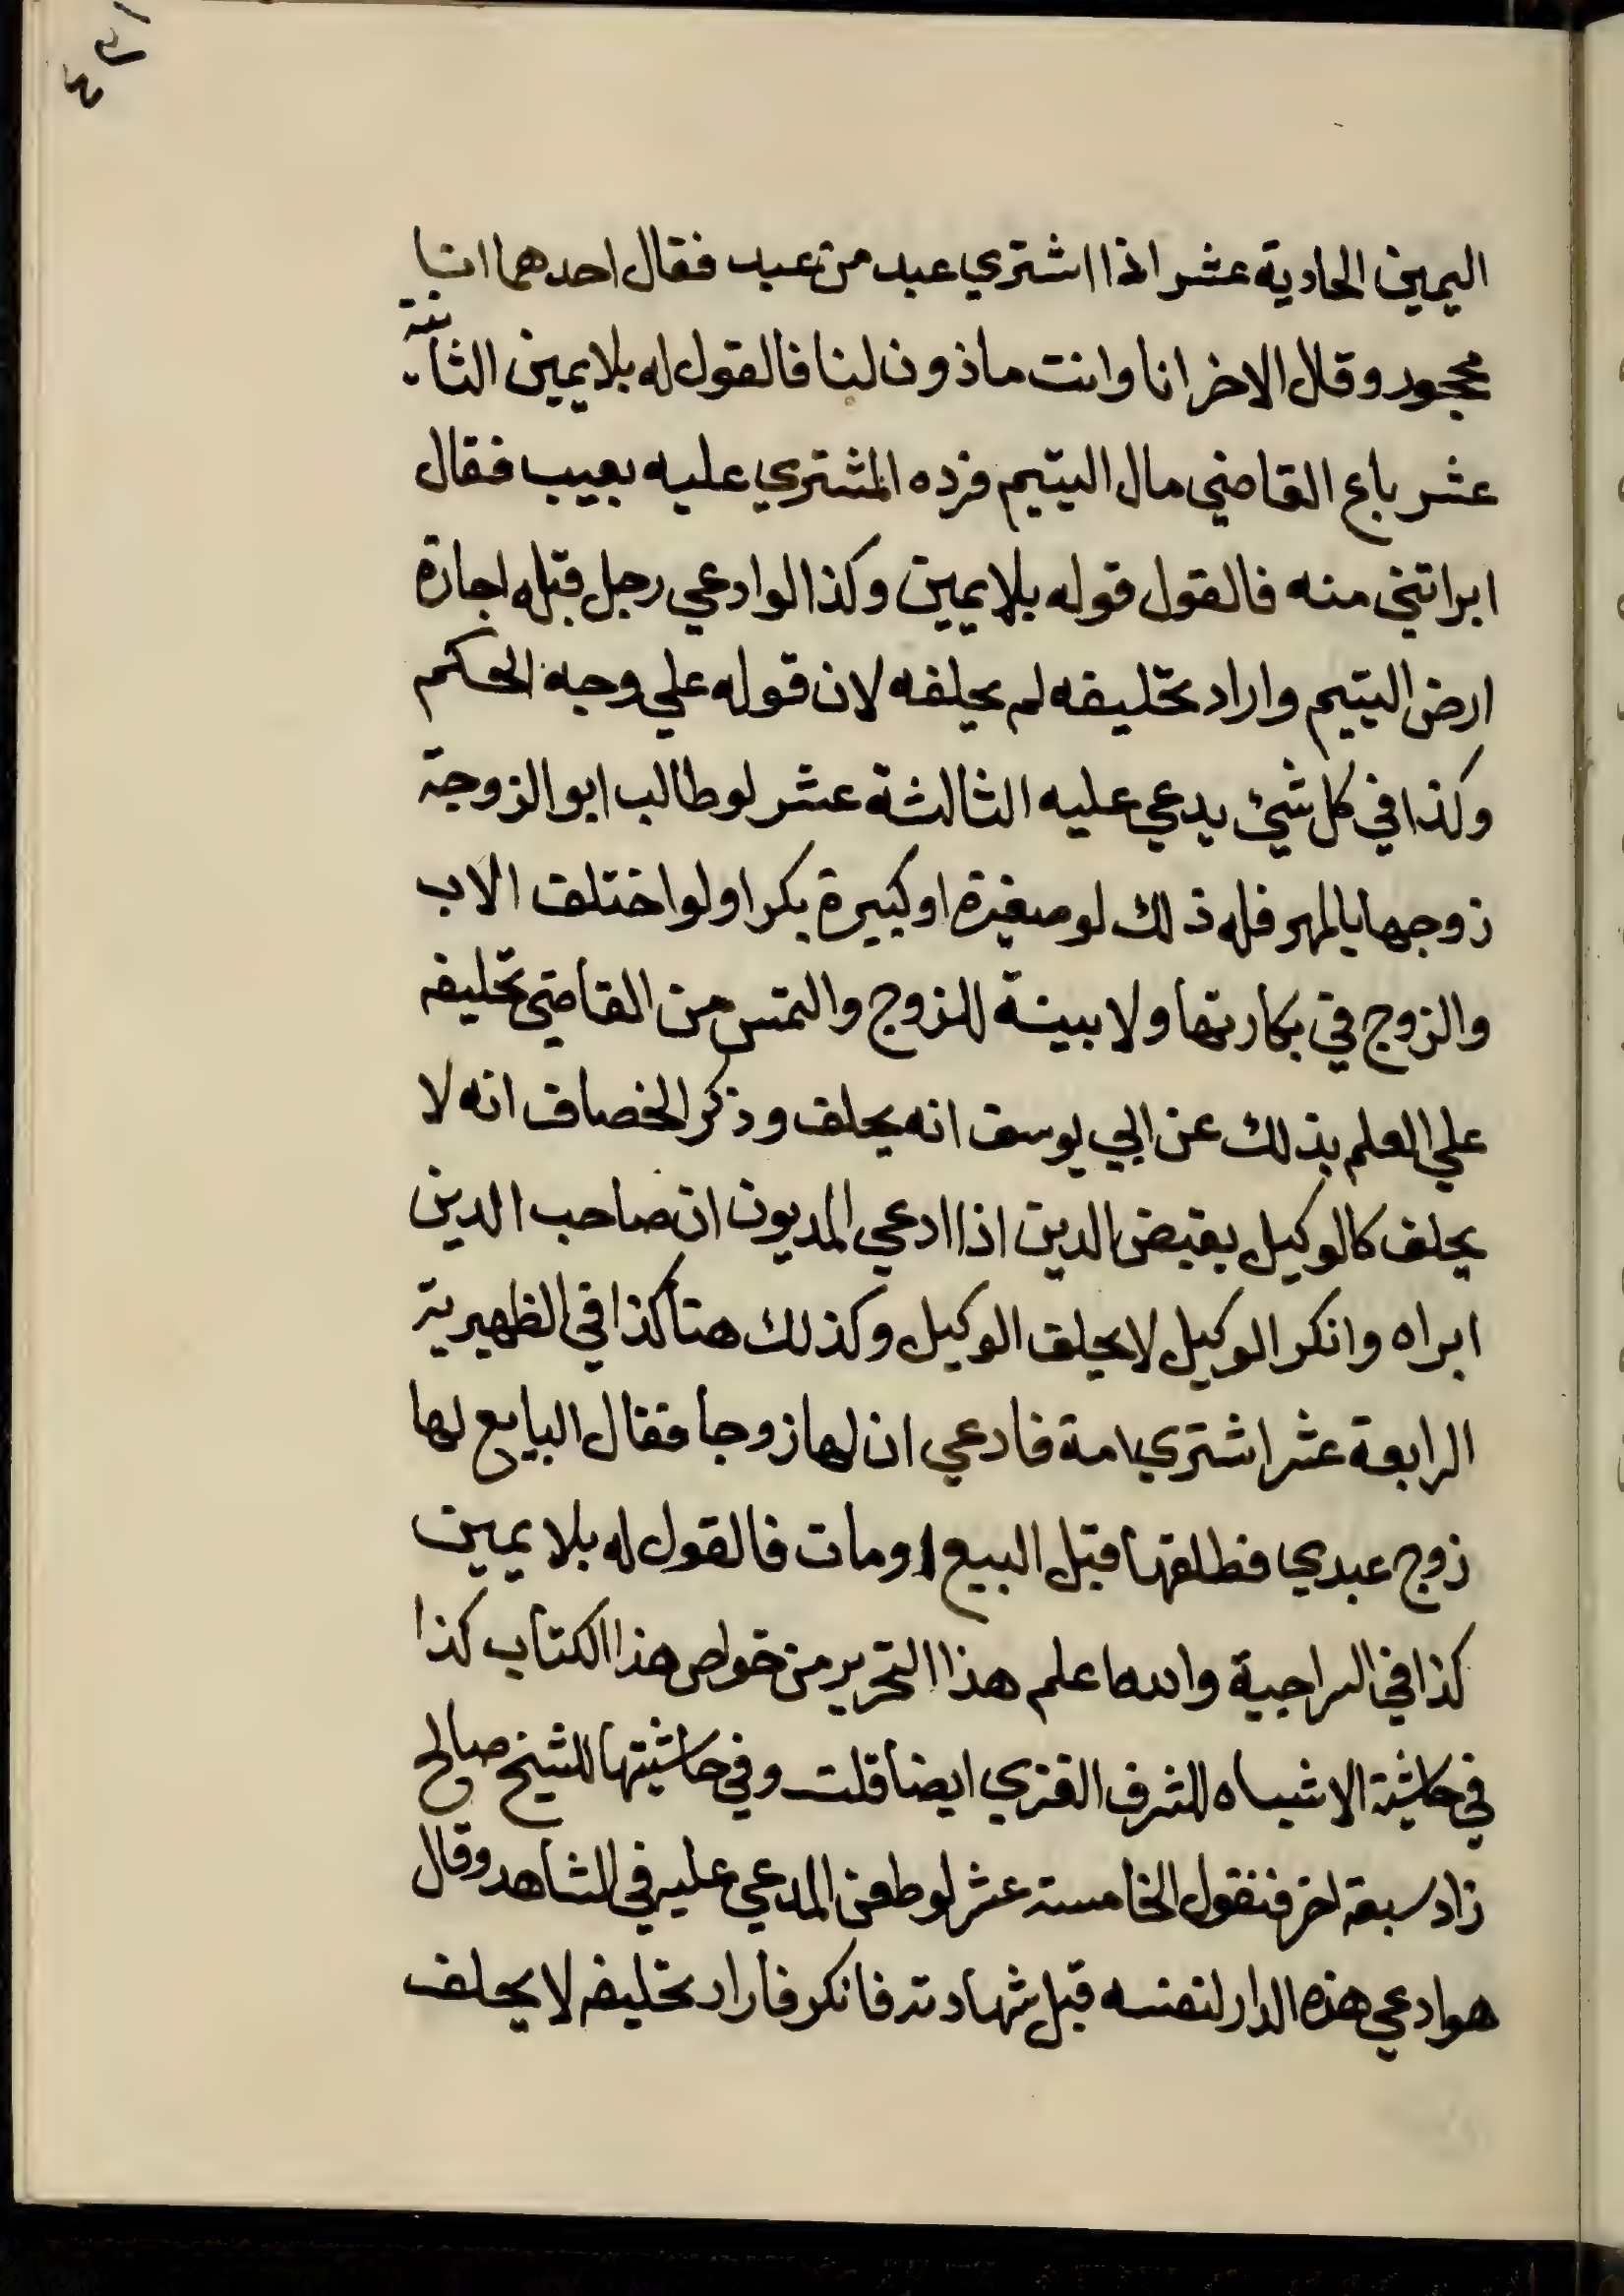 اليمين الحادية عشر اذا اشتري عبد من عبد فقال احدهما انا
محجور وقال الاخر انا وانت ماذون لنا فالقول له بلا يمين الثانية
عشر باع القاضي مال اليتيم فرده المشتري عليه بعيب فقال
ابراتني منه فالقول قوله بلا يمين وكذا لو ادعي رجل قبله اجارة
ارض اليتيم واراد تحليفه لم يحلفه لان قوله علي وجه الحكم
وكذا في كل شئ يدعي عليه الثالثة عشر لو طالب ابو الزوجة
زوجها بالمهر فله ذلك لو صغيرة او كبيرة بكرا ولو اختلف الاب
والزوج في بكارتها ولا بينة للزوج والتمس من القاضي تحليفه
علي العلم بذلك عن ابي يوسف انه يحلف وذكر الخصاف انه لا
يحلف كالوكيل بقبض الدين اذا ادعي المديون ان صاحب الدين
ابراه وانكر الوكيل لا يحلف الوكيل وكذلك هنا كذا في الظهيرية
الرابعة عشر اشتري امة فادعي ان لها زوجا فقال البايع لها
زوج عبدي فطلقها قبل البيع او مات فالقول له بلا يمين
كذا في السراجية والله اعلم هذا التحرير من خواص هذا الكتاب كذا
في حاشية الاشباه للشرف الغزي ايضا قلت وفي حاشيتها للشيخ صالح
زاد سبعة اخر فنقول الخامسة عشر لو طعن المدعي عليه في الشاهد وقال
هو ادعي هذه الدار لنفسه قبل شهادته فانكر فاراد تحليفه لا يحلف